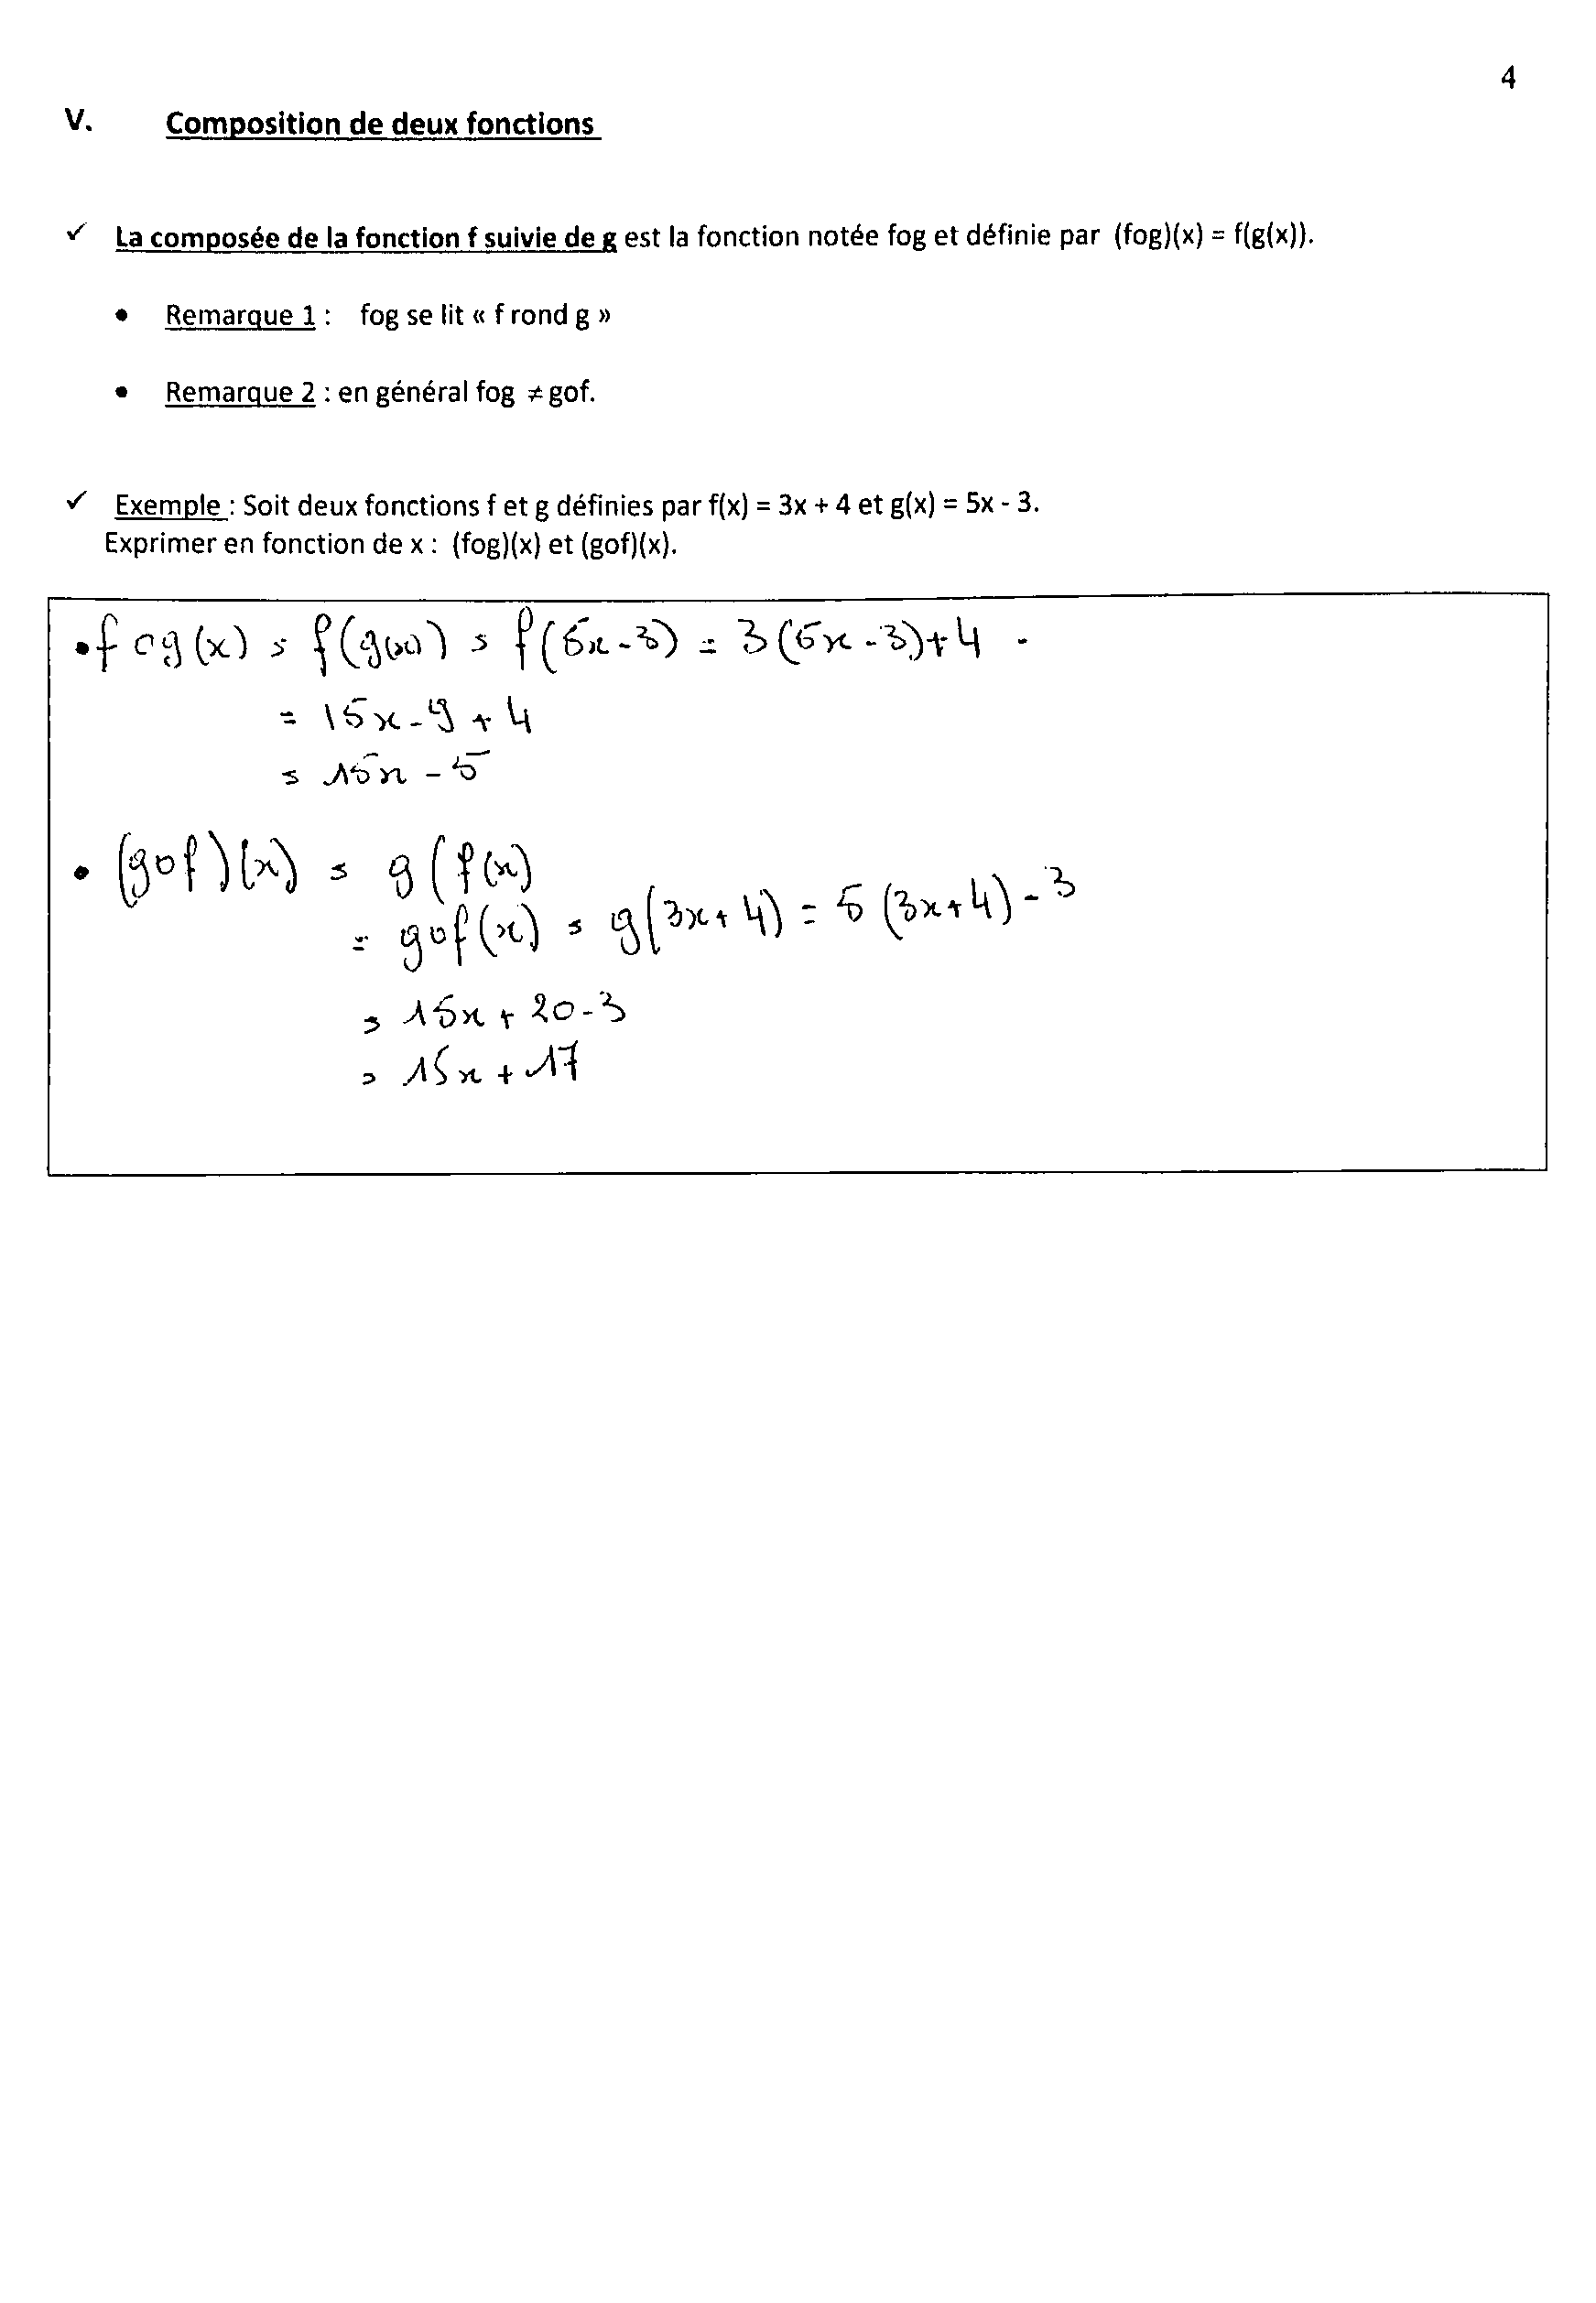 4
V. Composition de deux fonctions
✓ La composée de la fonction f suivie de g est la fonction notée fog et définie par (fog)(x) = f(g(x)).
• Remarque 1 : fog se lit « f rond g »
• Remarque 2 : en général fog ≠ gof.
✓ Exemple : Soit deux fonctions f et g définies par f(x) = 3x + 4 et g(x) = 5x - 3.
Exprimer en fonction de x : (fog)(x) et (gof)(x).
• fog(x) = f(g(x)) = f(5x-3) = 3(5x-3)+4
= 15x-9+4
= 15x-5
• (gof)(x) = g(f(x)
= gof(x) = g(3x+4) = 5(3x+4)-3
= 15x+20-3
= 15x+17